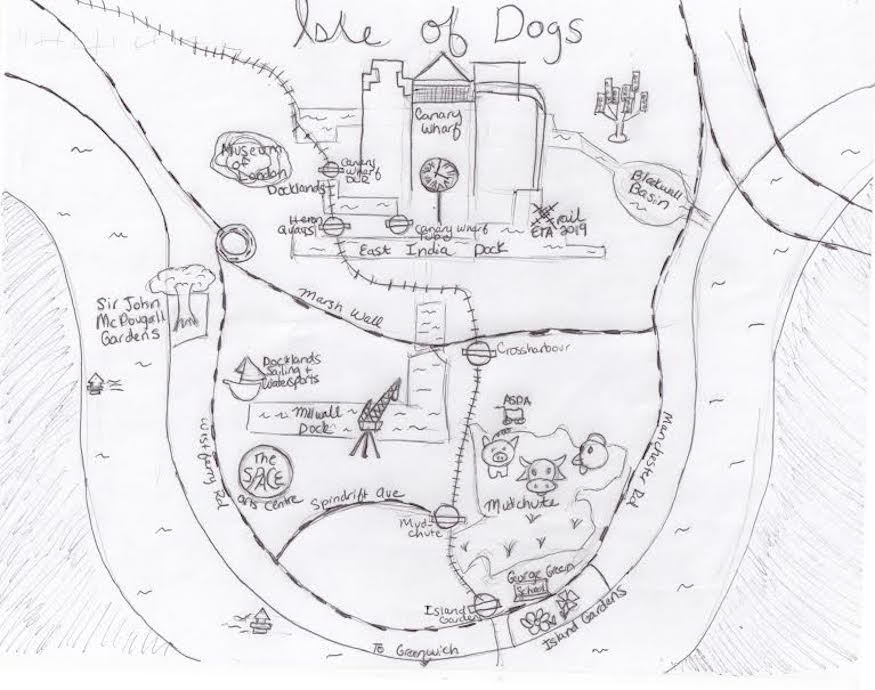 Isle of Dogs
Canary
Wharf
Museum
of
London
Docklands
Canary
Wharf
DLR
Blackwall
Basin
Heron
Quays
Canary Wharf
Tube
rail
ETA 2019
East India Dock
Marsh Wall
Sir John
McDougall
Gardens
Crossharbour
Docklands
Sailing +
Watersports
ASDA
Millwall
Dock
Westferry Rd
Manchester Rd
The
SPACE
arts centre
Spindrift Ave
Mudchute
Mud-
chute
George Green
School
Island
Gardens
Island Gardens
To Greenwich